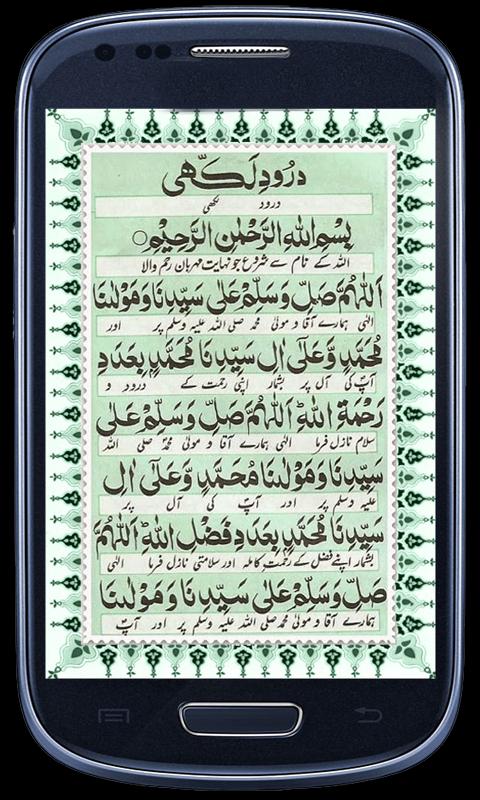 درُودِ لَكّهى
درود لکھی
بِسْمِ اللهِ الرَّحْمٰنِ الرَّحِيْمِ
اللہ کے نام سے شروع جو نہایت مہربان رحم والا
اَللّٰهُمَّ صَلِّ وَسَلِّمْ عَلٰى سَيِّدِنَا وَمَوْلٰنَا
الٰہی ہمارے آقا و مولیٰ محمد صلی اللہ علیہ وسلم پر اور
مُحَمَّدٍ وَّعَلٰٓى اٰلِ سَيِّدِنَا مُحَمَّدٍ بِعَدَدِ
آپؐ کی آل پر بشمار اپنی رحمت کے درود و
رَحْمَةِ اللهِ ؕ اَللّٰهُمَّ صَلِّ وَسَلِّمْ عَلٰى
سلام نازل فرما الٰہی ہمارے آقا و مولیٰ محمدؐ صلی اللہ
سَيِّدِنَا وَمَوْلٰنَا مُحَمَّدٍ وَّعَلٰٓى اٰلِ
علیہ وسلم پر اور آپؐ کی آل پر
سَيِّدِنَا مُحَمَّدٍ بِعَدَدِ فَضْلِ اللهِ ؕ اَللّٰهُمَّ
بشمار اپنے فضل کے رحمت کاملہ اور سلامتی نازل فرما الٰہی
صَلِّ وَسَلِّمْ عَلٰى سَيِّدِنَا وَمَوْلٰنَا
ہمارے آقا و مولیٰ محمد صلی اللہ علیہ وسلم پر اور آپؐ